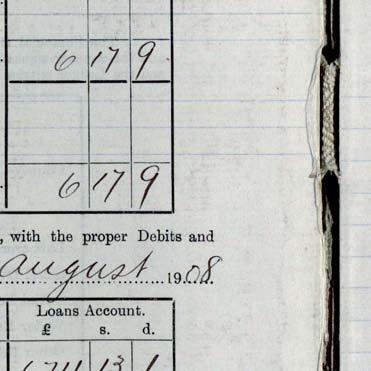 6 17 9
6 17 9
, with the proper Debits and
August 1908
Loans Account.
£ s. d.
13 1